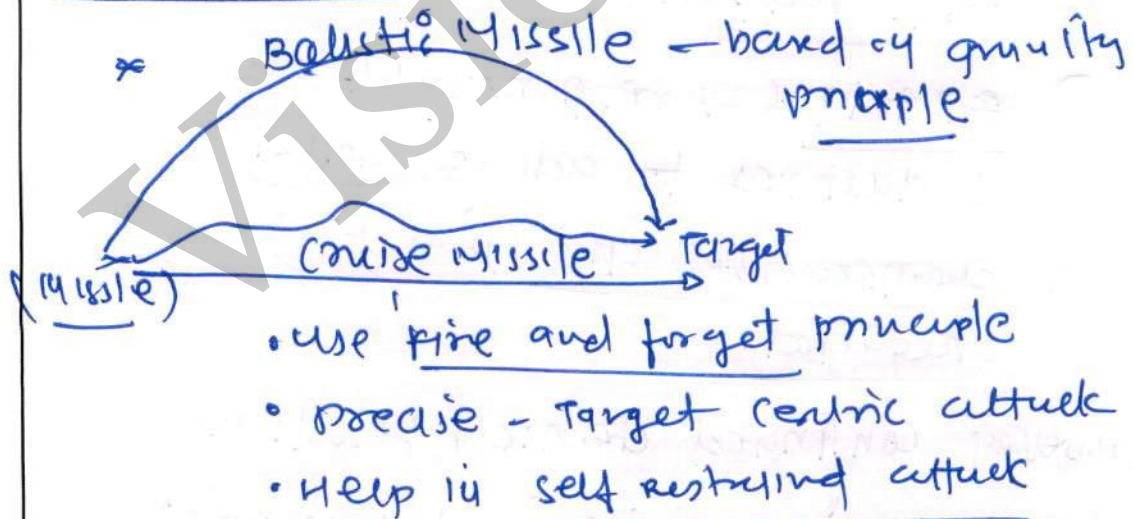 * Ballistic Missile – based on gravity
principle
Cruise Missile Target
(Missile)
• use fire and forget principle
• precise - Target centric attack
• Help in self restraind attack
Visio